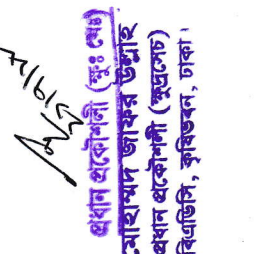 প্রধান প্রকৌশলী (ক্ষুঃ সেঃ)
মোহাম্মদ জাফর উল্লাহ
প্রধান প্রকৌশলী (ক্ষুদ্রসেচ)
বিএডিসি, কৃষিভবন, ঢাকা।